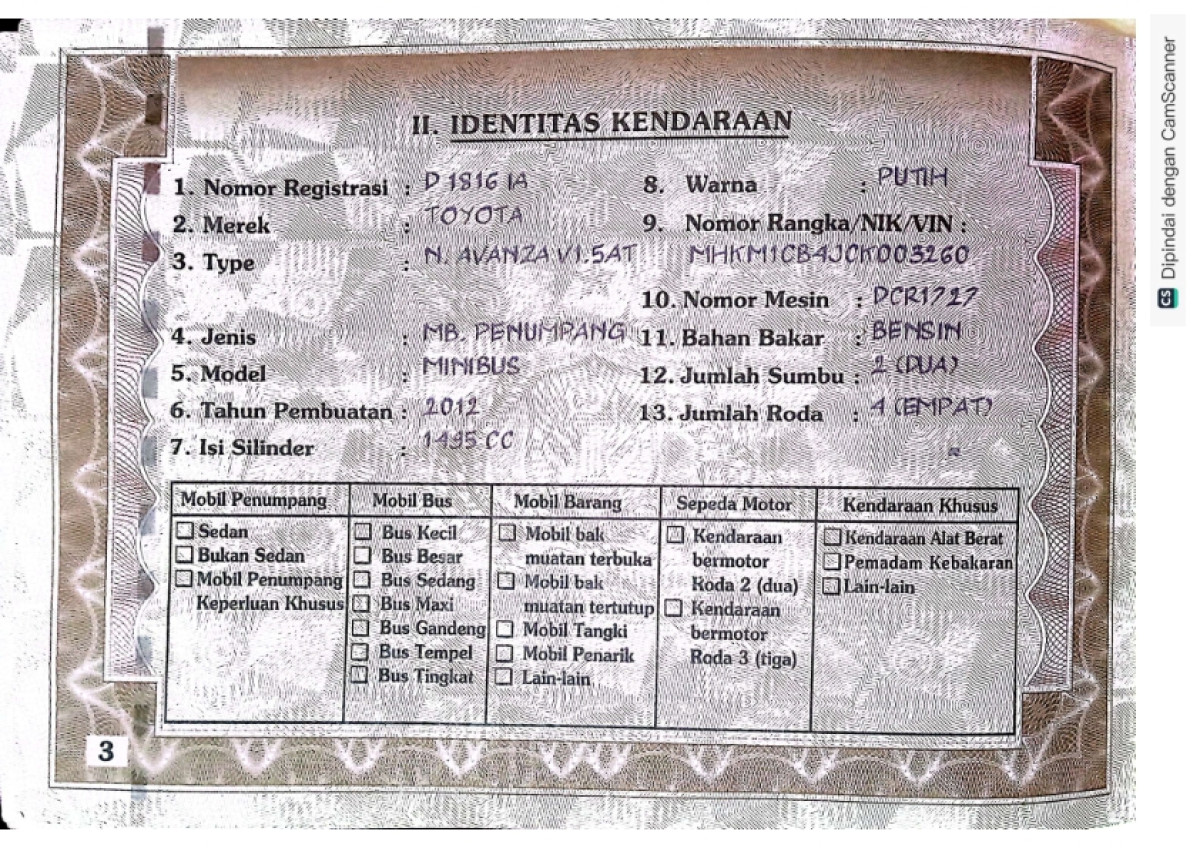 II. IDENTITAS KENDARAAN
1. Nomor Registrasi : D 1816 IA
2. Merek : TOYOTA
3. Type : N. AVANZA V1.5AT
4. Jenis : MB. PENUMPANG
5. Model : MINIBUS
6. Tahun Pembuatan : 2012
7. Isi Silinder : 1495 CC
8. Warna : PUTIH
9. Nomor Rangka/NIK/VIN :
MHKM1CB4JCK003260
10. Nomor Mesin : DCR1727
11. Bahan Bakar : BENSIN
12. Jumlah Sumbu : 2 (DUA)
13. Jumlah Roda : 4 (EMPAT)
Mobil Penumpang
Sedan
Bukan Sedan
Mobil Penumpang
Keperluan Khusus
Mobil Bus
Bus Kecil
Bus Besar
Bus Sedang
Bus Maxi
Bus Gandeng
Bus Tempel
Bus Tingkat
Mobil Barang
Mobil bak
muatan terbuka
Mobil bak
muatan tertutup
Mobil Tangki
Mobil Penarik
Lain-lain
Sepeda Motor
Kendaraan
bermotor
Roda 2 (dua)
Kendaraan
bermotor
Roda 3 (tiga)
Kendaraan Khusus
Kendaraan Alat Berat
Pemadam Kebakaran
Lain-lain
3
CS Dipindai dengan CamScanner